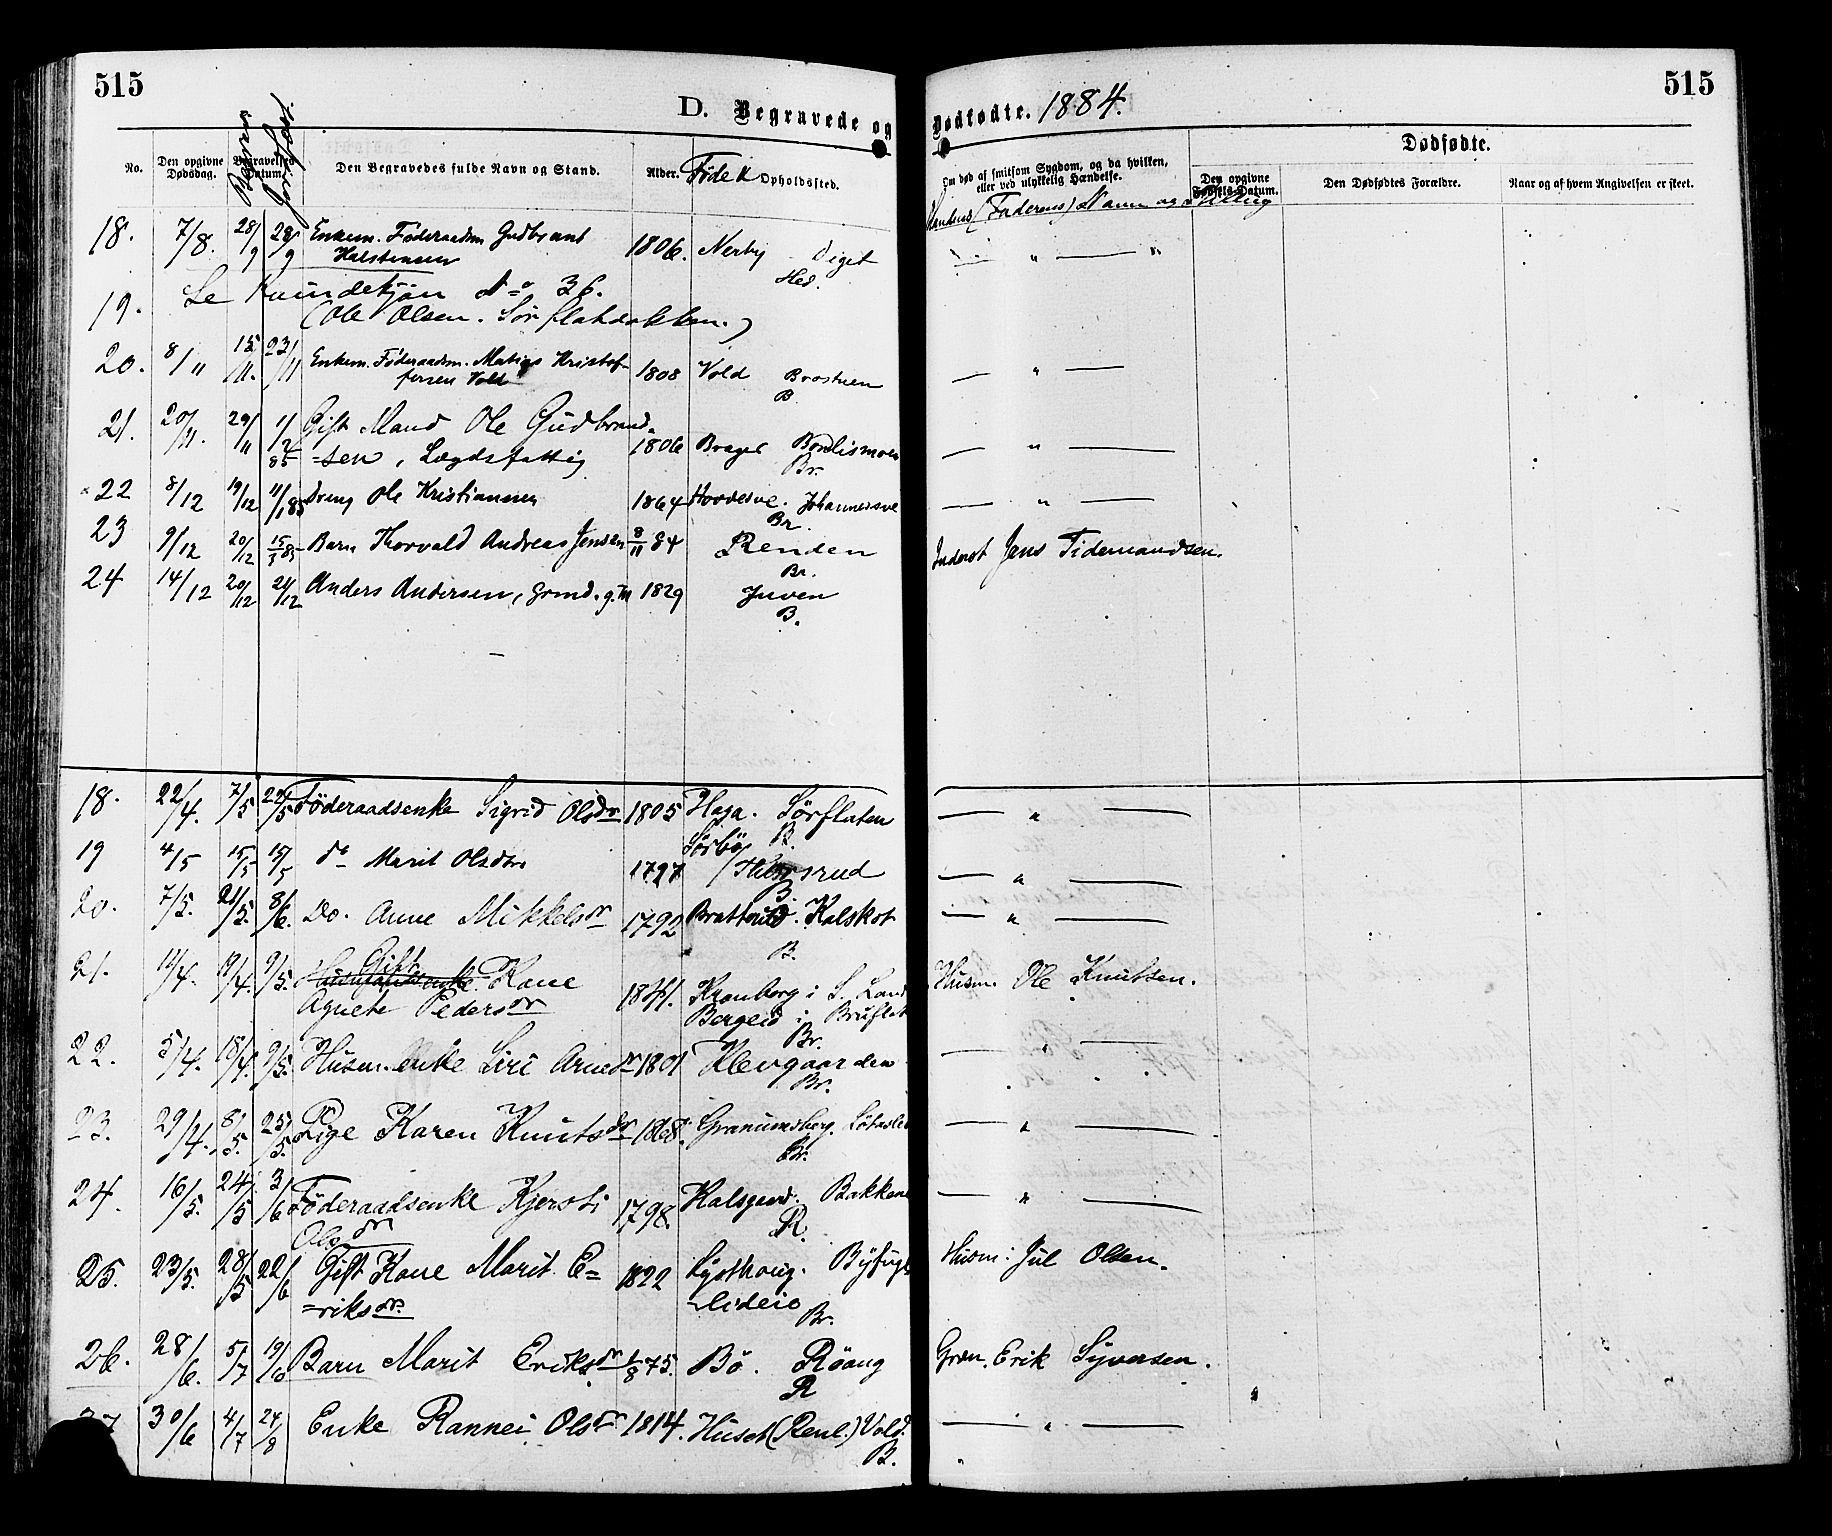 515
515
D. Begravede og Dødfødte. 1884.
No.
Den opgivne Dødsdag.
Begravelses Datum.
Den Begravedes fulde Navn og Stand.
Alder.
Føde
Opholdssted.
Om død af smitsom Sygdom, og da hvilken, eller ved ulykkelig Hændelse.
(Faderens) Navn og Stilling
Dødfødte.
Den opgivne Fødsels-Datum.
Den Dødfødtes Forældre.
Naar og af hvem Angivelsen er skeet.
18. 7/8. 28/9 28/9 Enkem. Føderaadsm Gudbrand 1806. Nerby Diget
Halstensen Hed.
19. Se No 36.
(Ole Olsen. Sørflatdokken.)
20. 8/11 15/11. 23/11 Enkem. Føderaadsm. Matias Kristof- 1808 Vold Brostuen
fersen Vold B
21. 20/11. 29/11 1/2 85 Gift Mand Ole Gudbrand-
=sen, Lægdsfattig 1806 Brager
Br.
22 8/12 19/12 11/1 85 Dreng Ole Kristiansen 1864 Johannesve
Br.
23 9/12 20/12 15/3 85 Barn Thorvald Andreas Jensen 8/11 84 Renden Inderst Jens Tidemandsen.
Br.
24 14/12 20/12 21/12 Anders Andersen, Grmd. g. M 1829 Juven
B.
18. 22/4. 7/5 22/5 Føderaadsenke Sigrid Olsdr 1805 Haga. Sørflaten
B.
19 4/5 15/5 15/5 do Marit Olsdtr 1797 Sørbø
B.
20. 7/5. 21/5. 8/6. Do. Anne Mikkelsdr 1792 Bratrud. Kalskot
B.
21. 11/4. 19/4. 9/5. Gift Kone Husm. Ole Knutsen.
Agnete Pedersdr 1841. Kronborg i S. Land
Bergeid i Bruflat
Br.
22. 5/4. 18/4. 9/5. Husm. enke Siri Arnedr 1801 Klevgaarden
Br.
23. 29/4. 8/5. 25/5. Pige Karen Knutsdr 1868. Granumsberg.
Br.
24. 16/5. 24/5 3/6 Føderaadsenke Kjersti 1798. Kalsrud. Bakken
Olsdr R.
25. 23/5. 28/5 22/6 Gift Kone Marit E= 1822 Lysthaug. Husm: Jul Olsen.
=riksdr. Br.
26. 28/6. 5/7 19/10 Barn Marit Eriksdr 1/8 75. Bø. Røang Grm. Erik Syversen.
R
30/6 4/7 24/8 Enke Rannei Olsdr 1814. Huset (Renl.) Vold.
B.